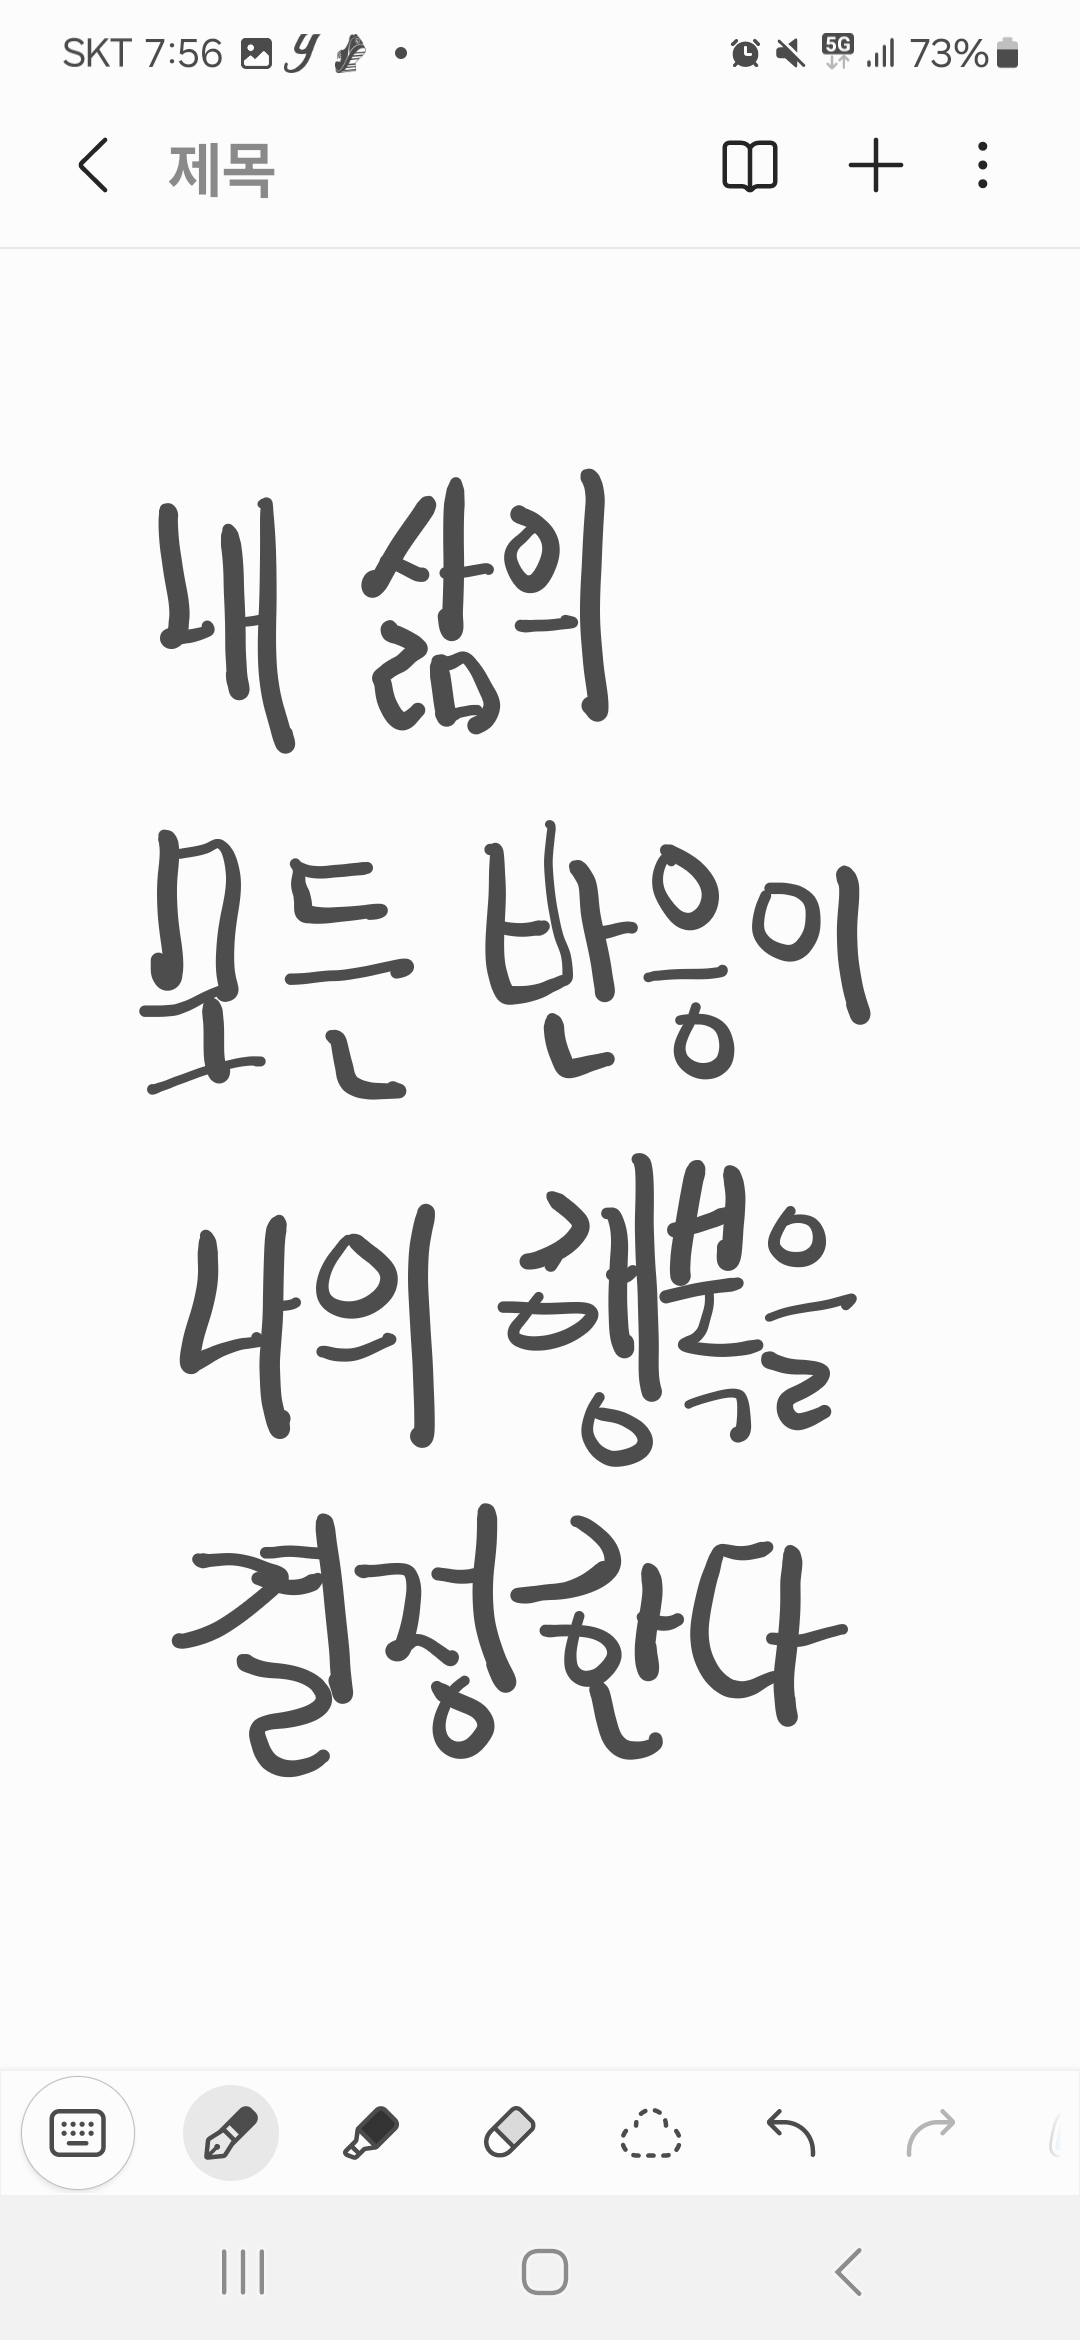 SKT 7:56 73%
5G
제목
내 삶의
모든 반응이
나의 행복을
결정한다